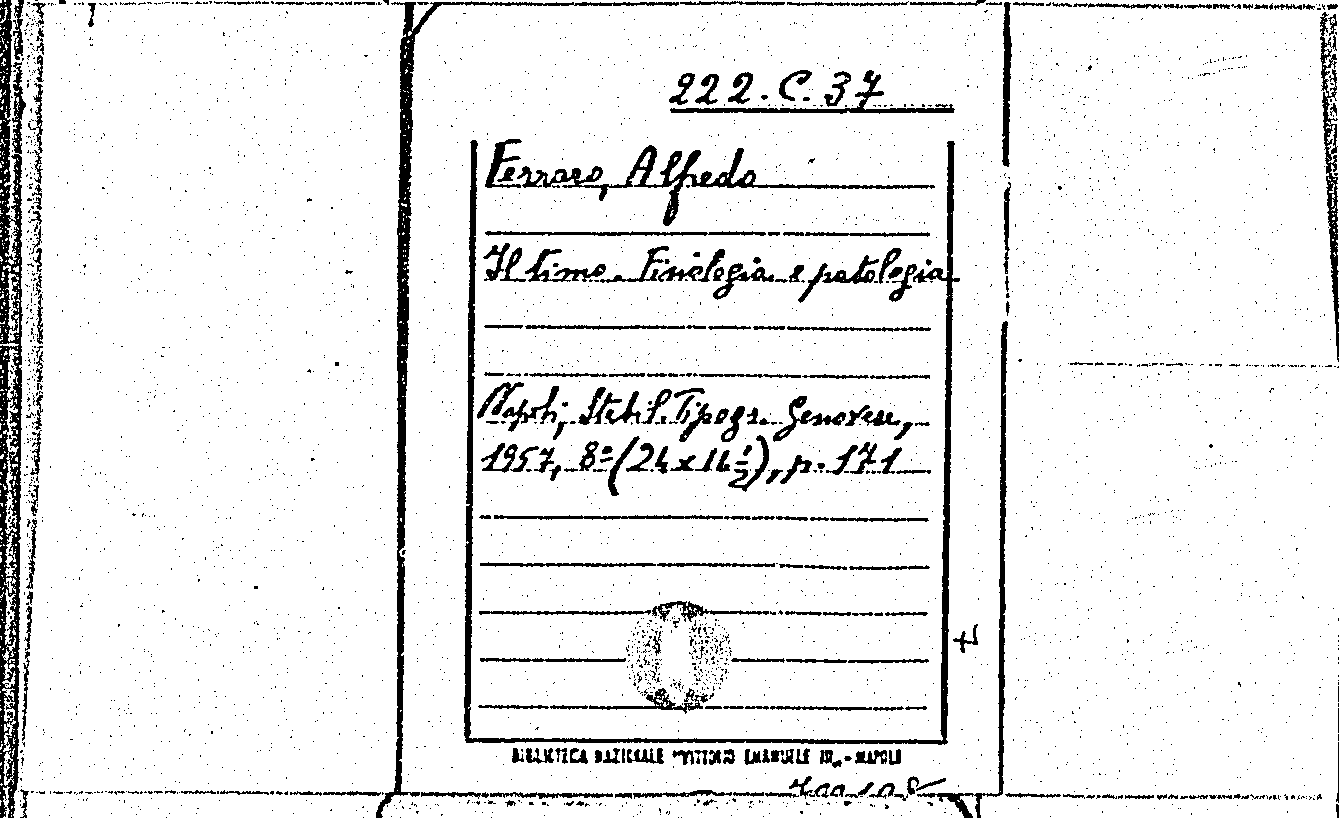 222.C.37
Ferraro, Alfredo
Il timo. Fisiologia e patologia
Napoli, Stabil. Tipogr. Genovese,
1957, 8º (24 x 16 ½), p. 171
BIBLIOTECA NAZIONALE "VITTORIO EMANUELE III" - NAPOLI